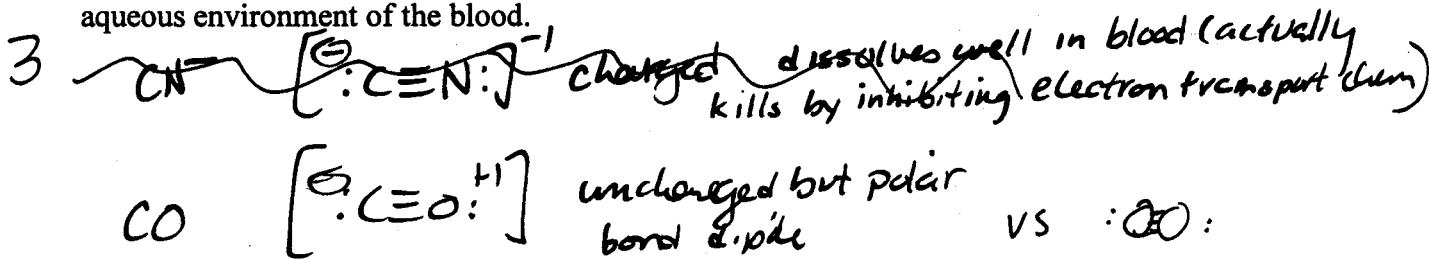 aqueous environment of the blood.
3 CN⁻ [⊖:C≡N:]⁻¹ charged dissolves well in blood (actually
kills by inhibiting electron transport chem)
CO [⊖:C≡O:⁺¹] uncharged but polar
bond dipole
vs :O=O: